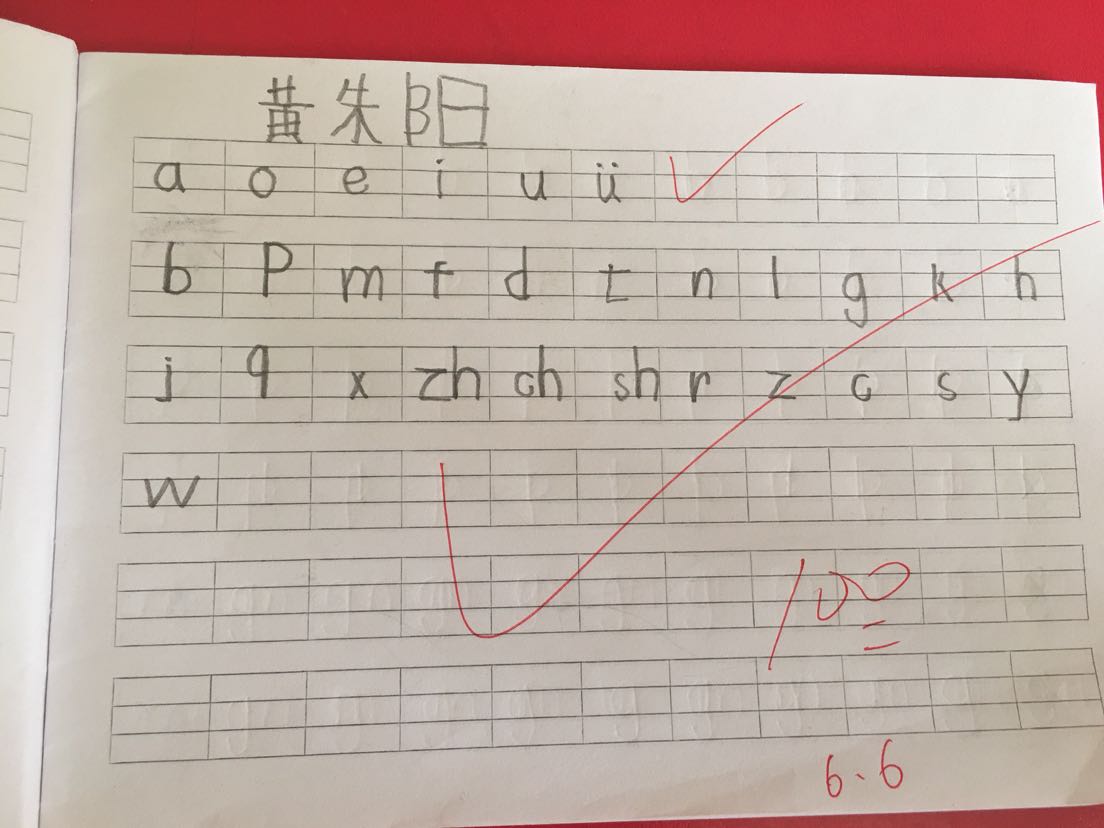 黄朱阳
a o e i u ü
b p m f d t n l g k h
j q x zh ch sh r z c s y
w
100
6.6